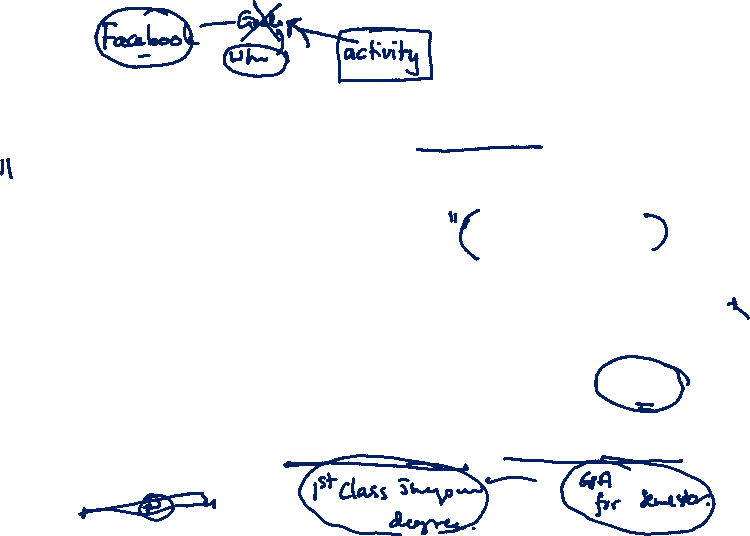 Facebook
activity
1st Class In your
degree.
GPA
for Semester.